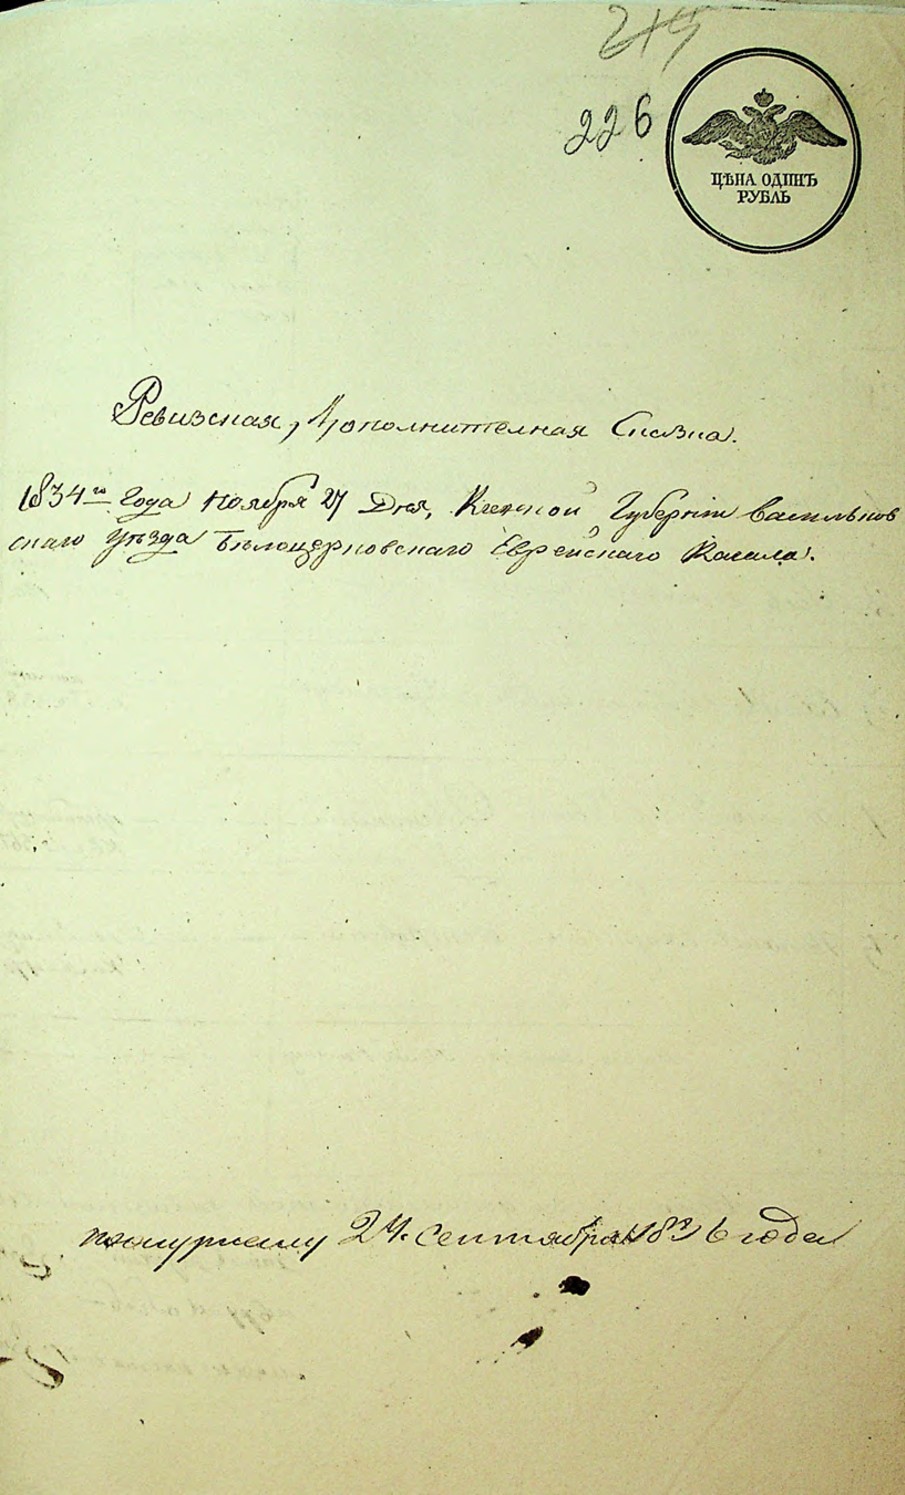 219
226
ЦѢНА ОДИНЪ
РУБЛЬ
Ревизская, Дополнителная Сказка.
1834го Года Ноября 27 Дня, Киевской Губернiи Васильков
скаго Уѣзда Бѣлоцерковскаго Еврейскаго Кагала.
24. Сентября 1836 года